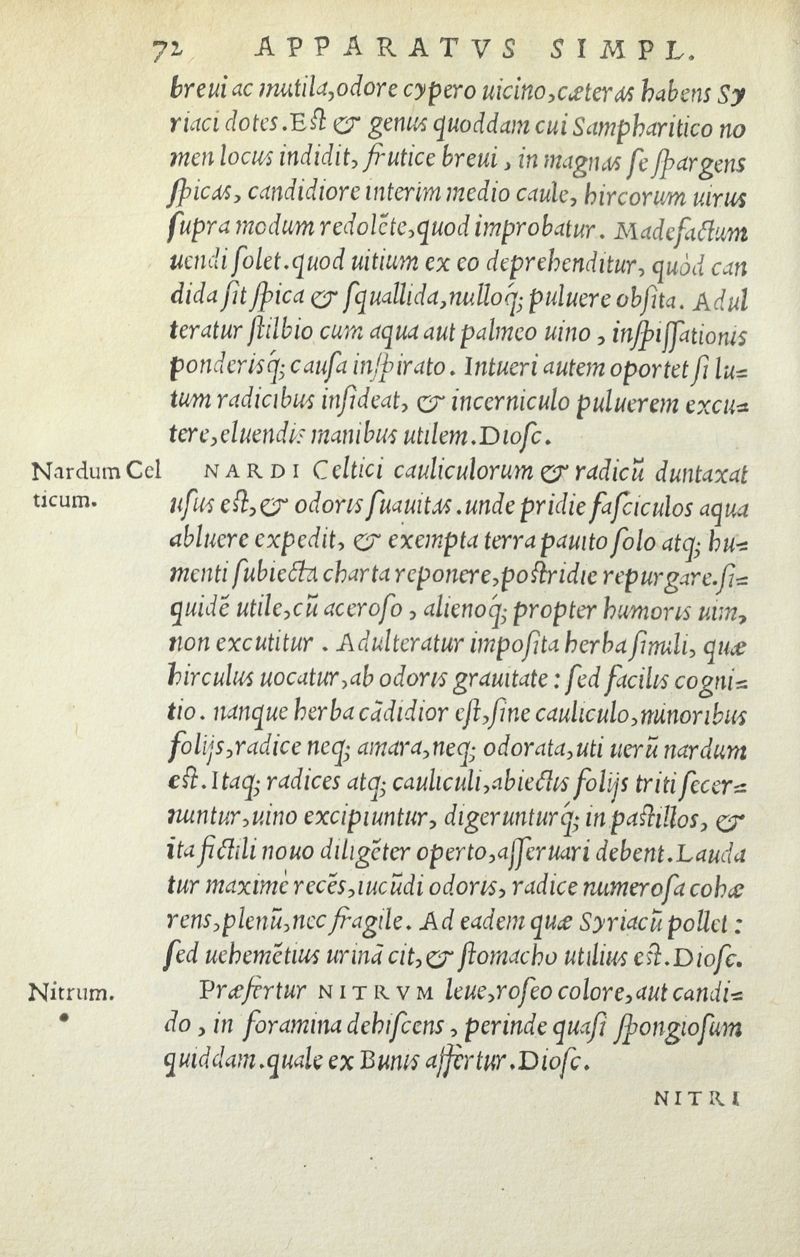 72 APPARATVS SIMPL.
breui ac mutila, odore cypero uicino, cæteras habens Sy
riaci dotes. Est & genus quoddam cui Sampharitico no
men locus indidit, frutice breui, in magnas se spargens
spicas, candidiore interim medio caule, hircorum uirus
supra modum redolẽte, quod improbatur. Madefactum
uendi solet. quod uitium ex eo deprehenditur, quòd can
dida sit spica & squallida, nulloq́; puluere obsita. Adul
teratur stilbio cum aqua aut palmeo uino, inspissationis
ponderisq́; causa inspirato. Intueri autem oportet si lu=
tum radicibus insideat, & incerniculo puluerem excu=
tere, eluendis manibus utilem. Diosc.
Nardum Cel
ticum.
NARDI Celtici cauliculorum & radicũ duntaxat
usus est, & odoris suauitas. unde pridie fasciculos aqua
abluere expedit, & exempta terra pauito solo atq; hu=
menti subiecta charta reponere, postridie repurgare. si=
quidẽ utile, cũ aceroso, alienoq́; propter humoris uim,
non excutitur. Adulteratur imposita herba simili, quæ
hirculus uocatur, ab odoris grauitate: sed facilis cogni=
tio. nanque herba cãdidior est, sine cauliculo, minoribus
folijs, radice neq; amara, neq; odorata, uti uerũ nardum
est. Itaq; radices atq; cauliculi, abiectis folijs triti secer=
nuntur, uino excipiuntur, digerunturq́; in pastillos, &
ita fictili nouo diligẽter operto, asseruari debent. Lauda
tur maximè recẽs, iucũdi odoris, radice numerosa cohæ
rens, plenũ, nec fragile. Ad eadem quæ Syriacũ pollet:
sed uehemẽtius urinã cit, & stomacho utilius est. Diosc.
Nitrum.
Præfertur NITRVM leue, roseo colore, aut candi=
do, in foramina dehiscens, perinde quasi spongiosum
quiddam. quale ex Bunis affertur. Diosc.
NITRI